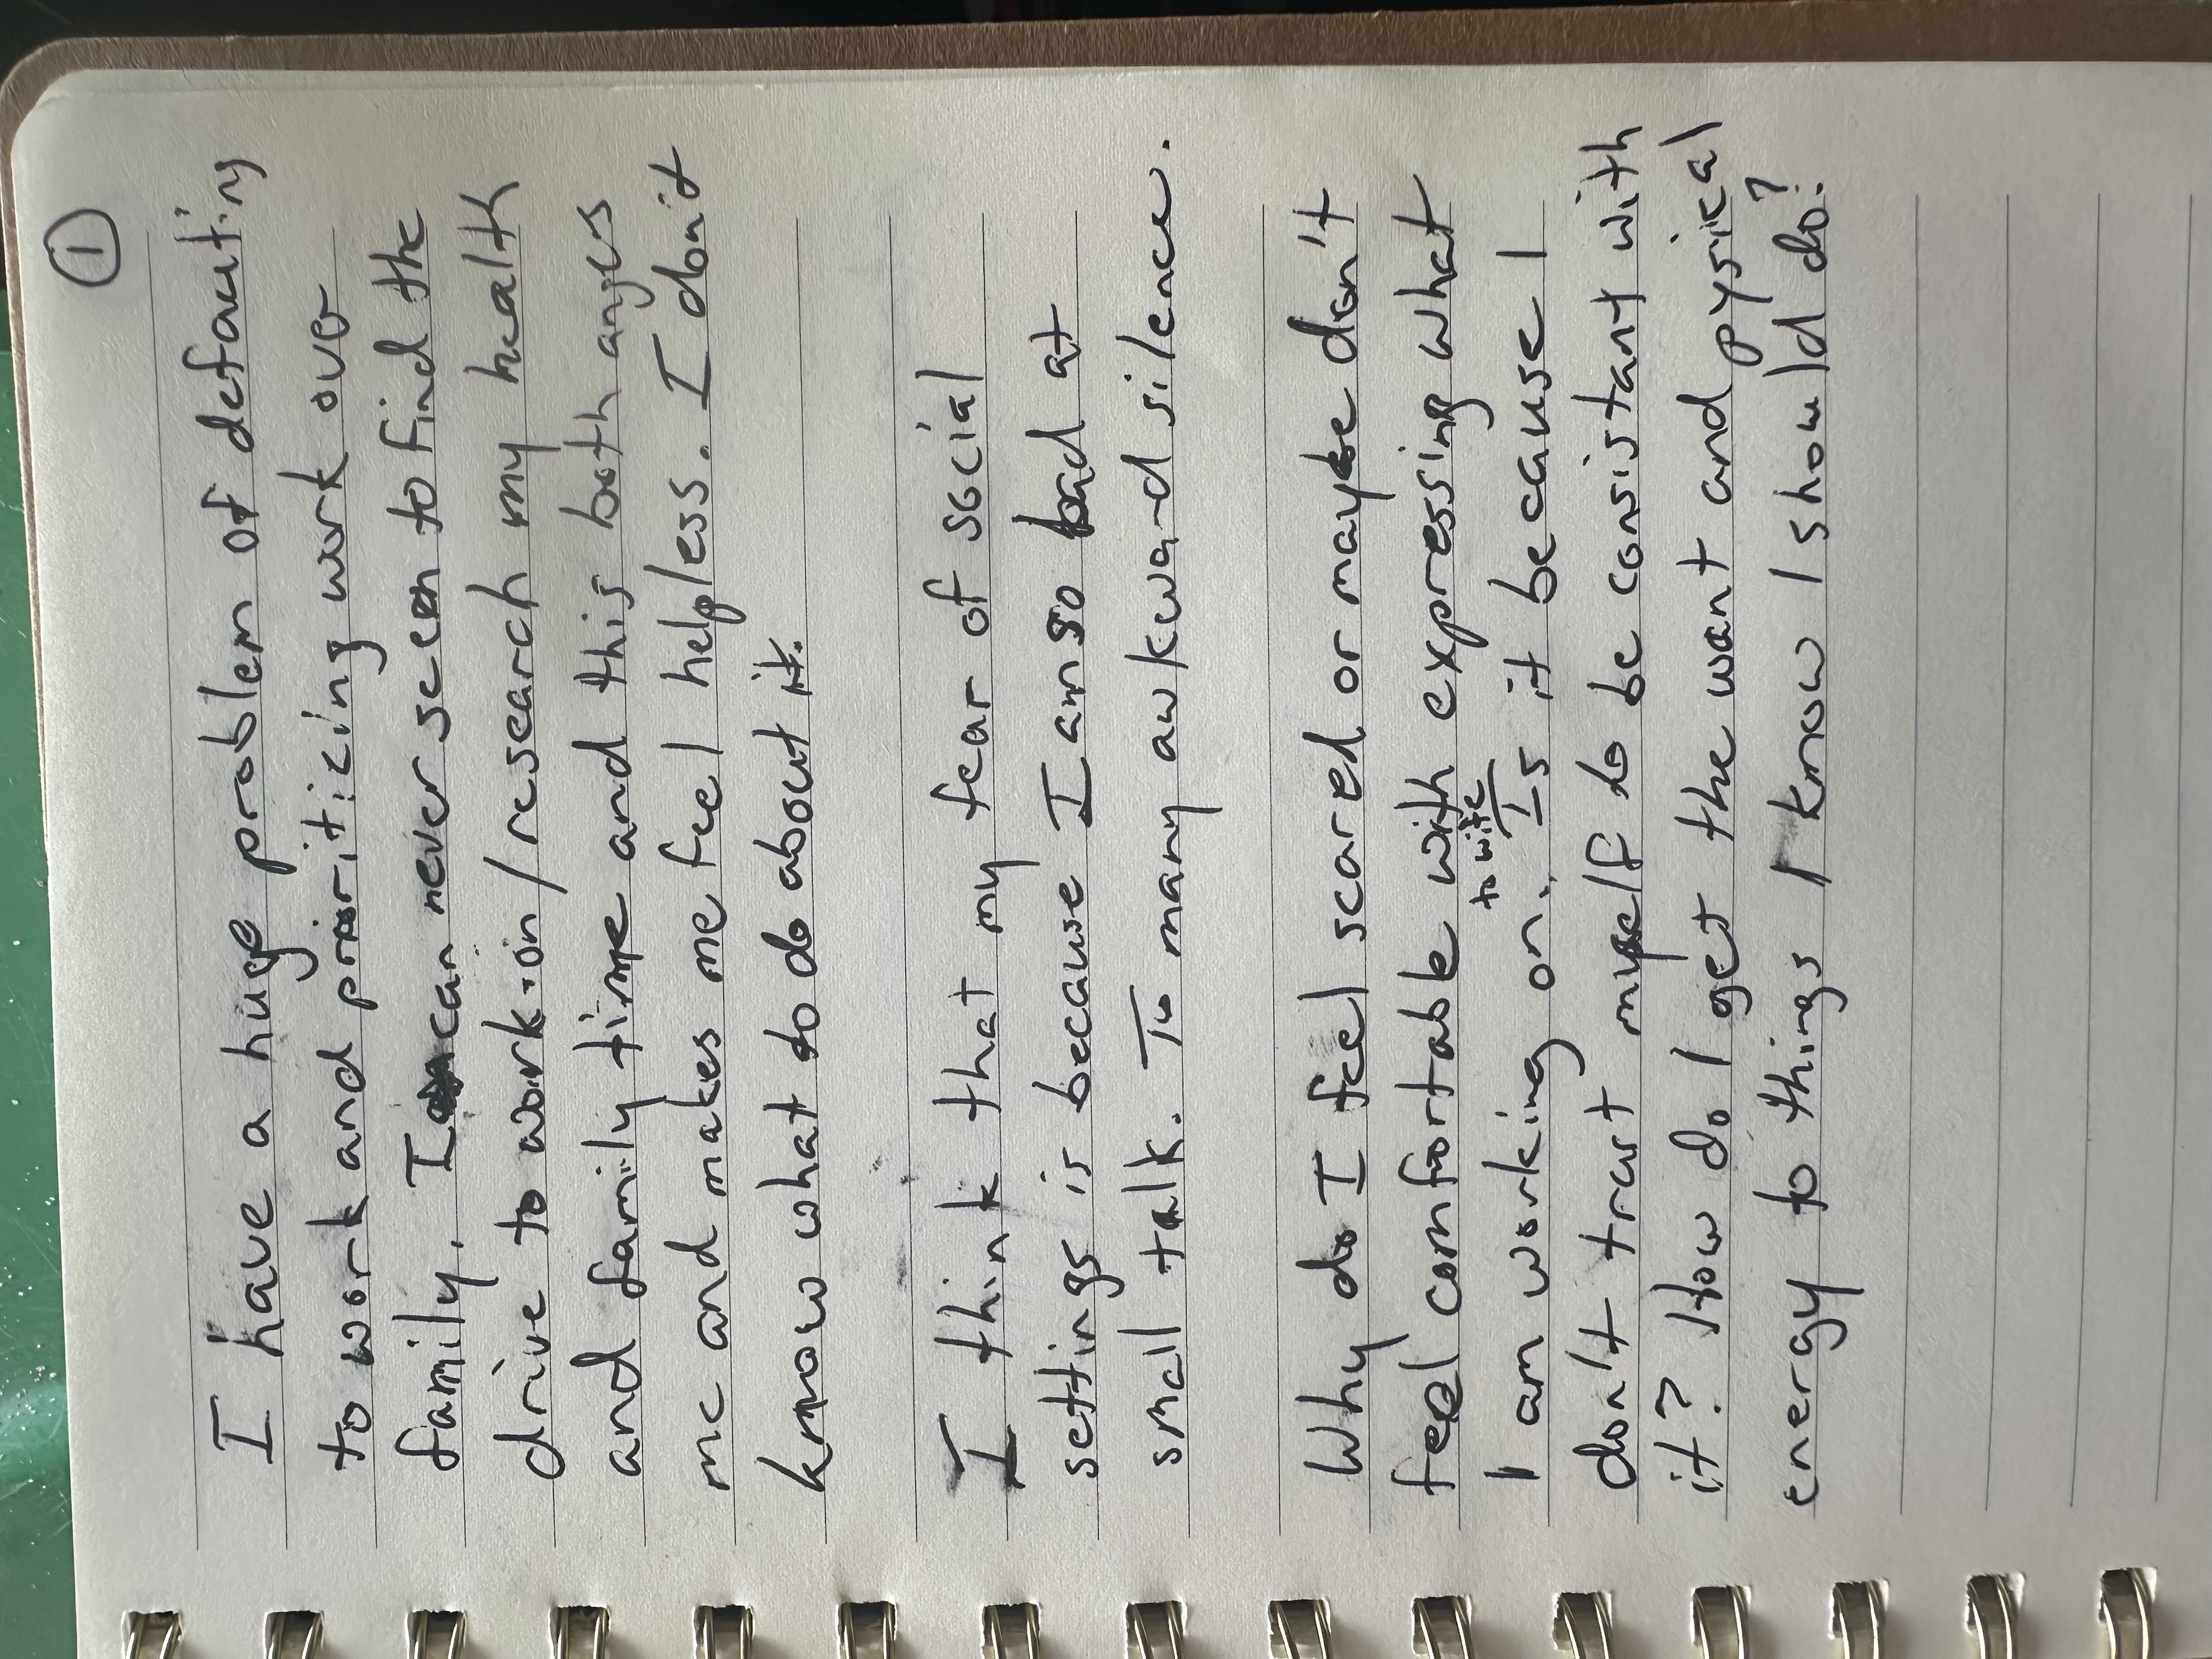 ①
I have a huge problem of defaulting
to work and prioriticing work over
family. I can never seem to find the
drive to work-on/research my health
and family time and this both anges
me and makes me feel helpless. I don't
know what to do about it.
I think that my fear of social
settings is because I am so bad at
small talk. To many awkward silence.
Why do I feel scared or maybe don't
feel comfortable with expressing what
to wife
I am working on. Is it because I
don't trust myself to be consistant with
it? How do I get the want and pysical
energy to things I know I should do?